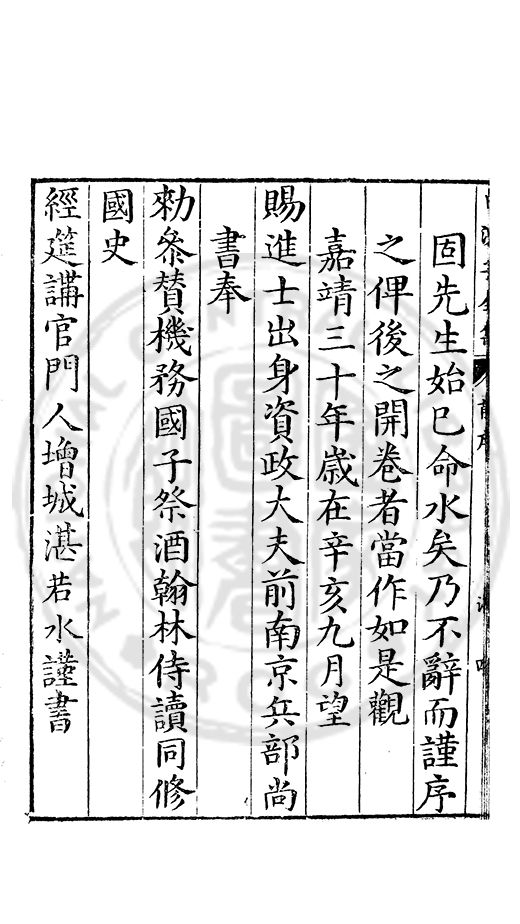 固先生始已命水矣乃不辭而謹序
之俾後之開卷者當作如是觀
嘉靖三十年歲在辛亥九月望
賜進士出身資政大夫前南京兵部尚
書奉
勑叅贊機務國子祭酒翰林侍讀同修
國史
經筵講官門人增城湛若水謹書